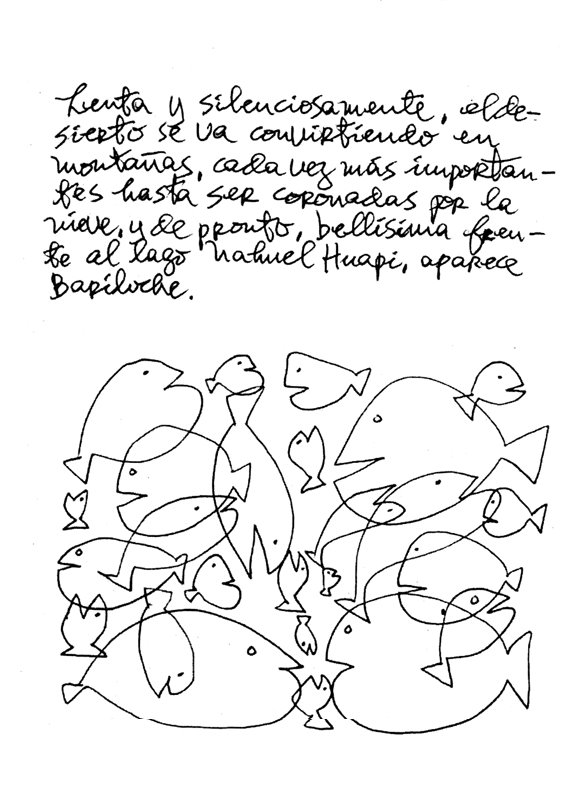 Lenta y silenciosamente, el de-
sierto se va convirtiendo en
montañas, cada vez más importan-
tes hasta ser coronadas por la
nieve, y de pronto, bellísima fren-
te al lago Nahuel Huapi, aparece
Bariloche.